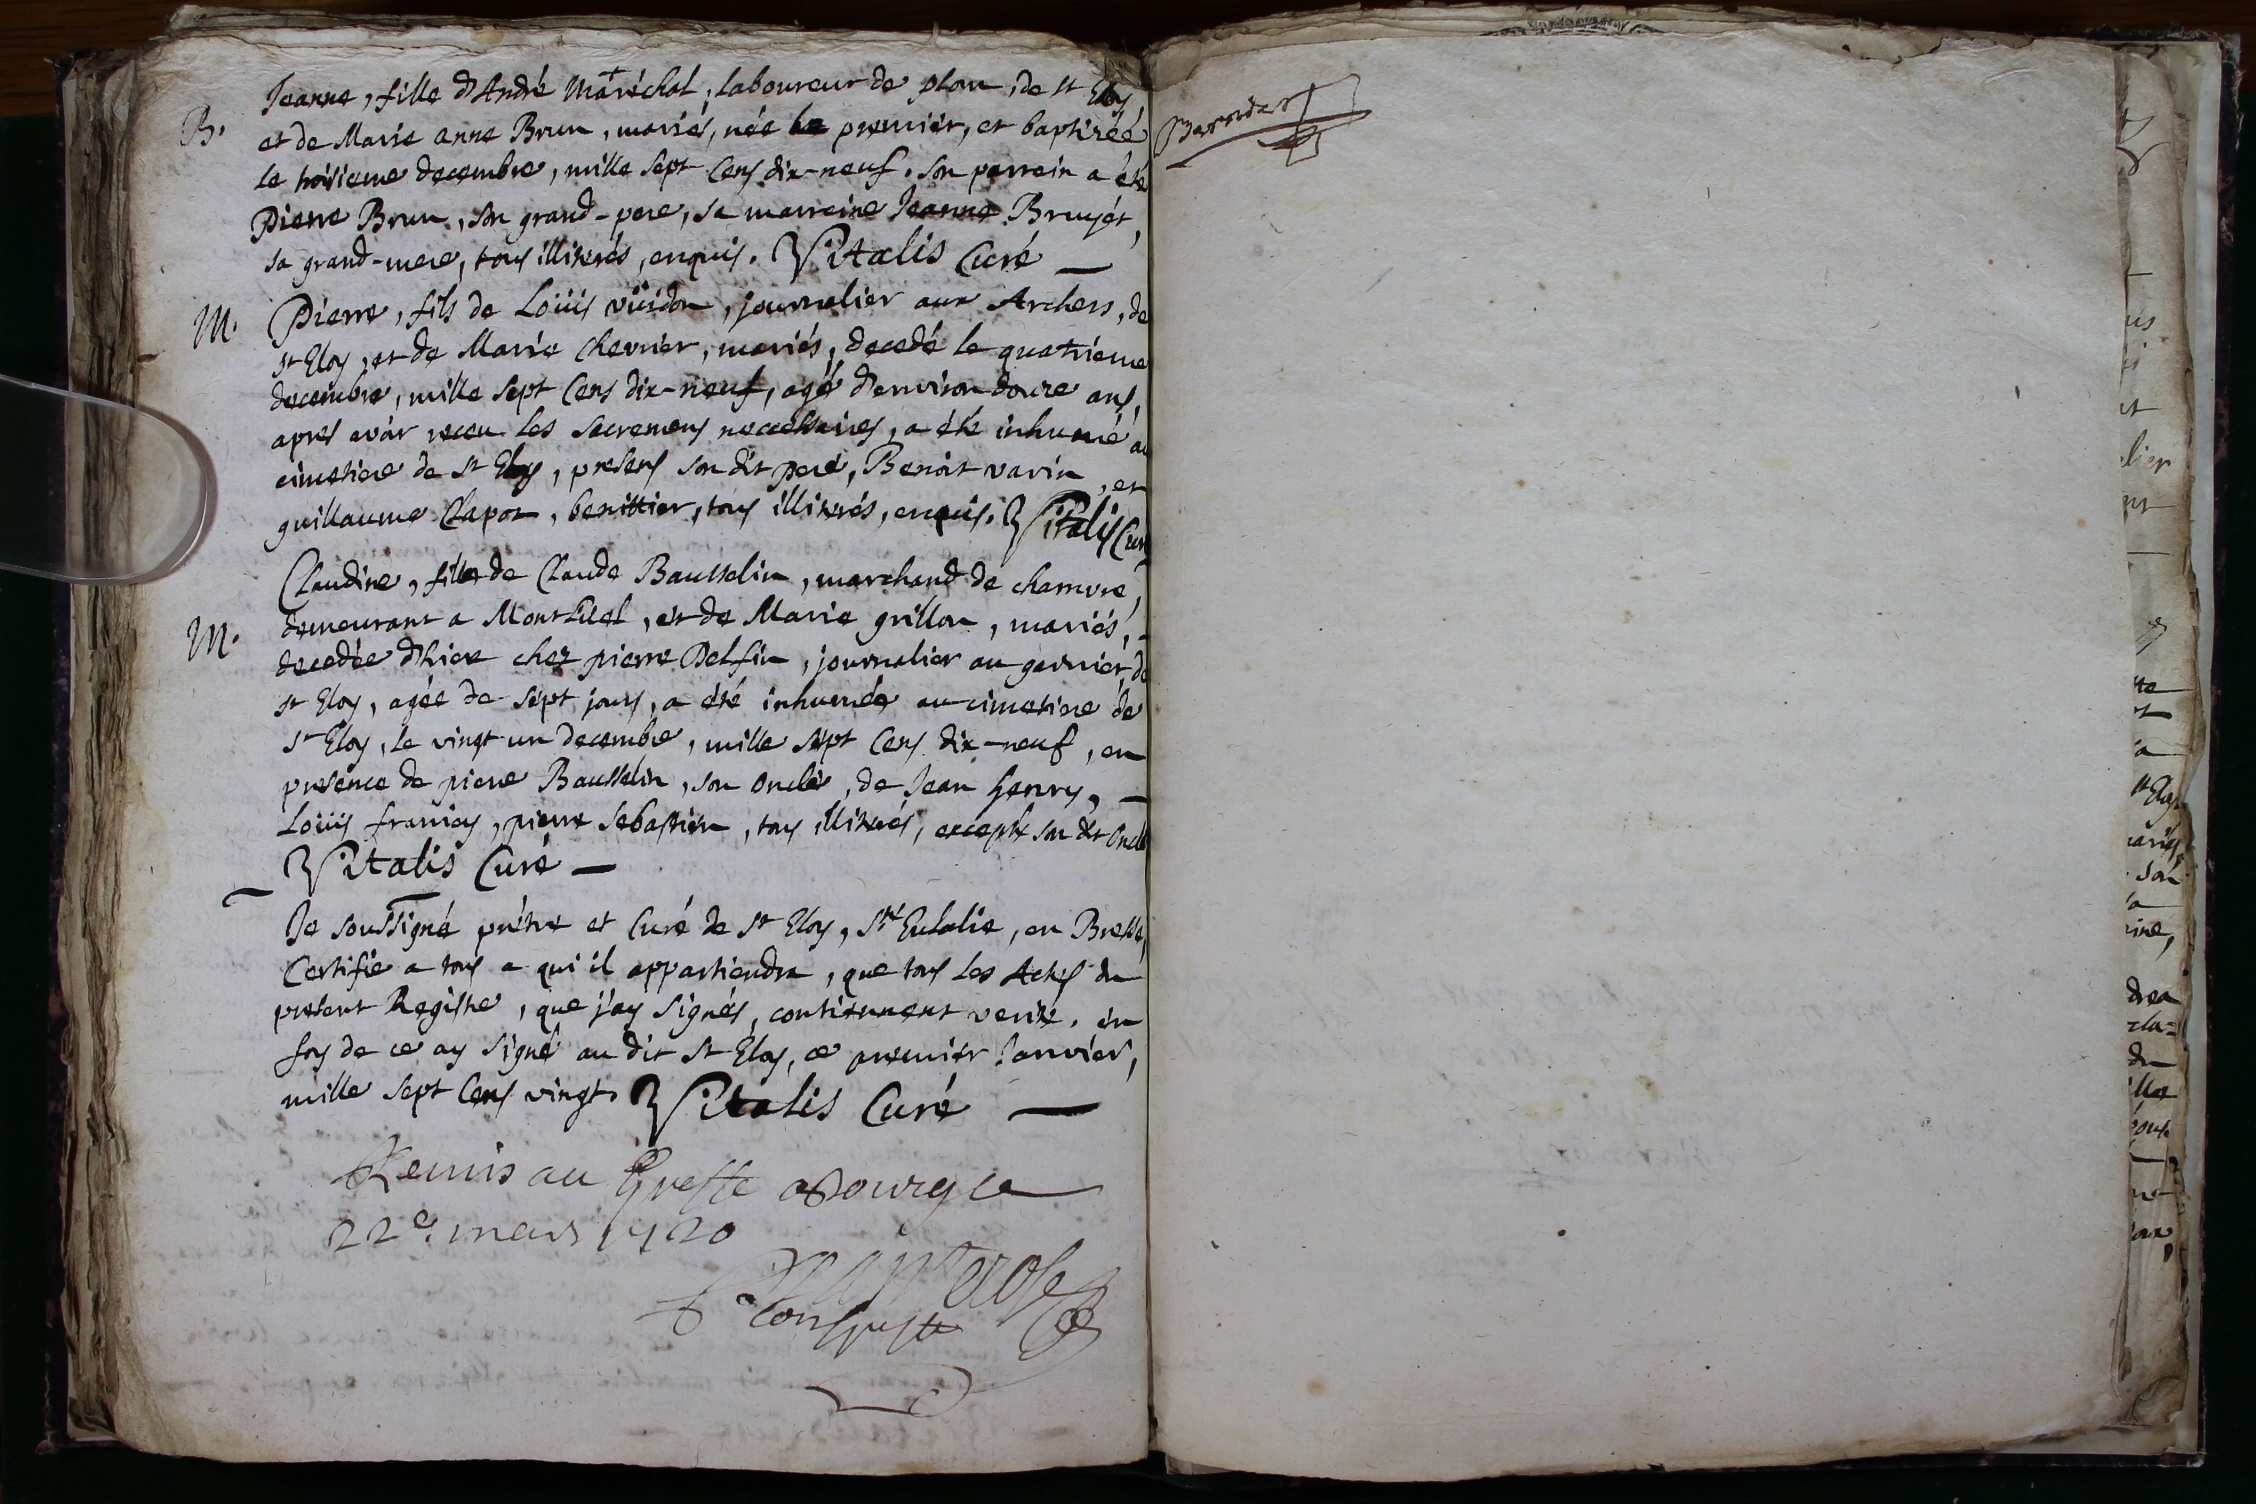 B. Jeanne, fille d'André Maréchal, laboureur de plan, de st Eloy,
et de Marie anne Brun, mariés, née le premier, et baptizée
le troisieme decembre, mille sept Cens dix-neuf. son parrein a été
Pierre Brun, son grand-pere, sa marreine Jeanne Bruyét,
sa grand-mere, tous illiterés, enquis. Vitalis Curé
M. Pierre, fils de Loüis vüidon, journalier aux Archers, de
st Eloy, et de Marie Chevrier, mariés, decedé le quatrieme
decembre, mille sept Cens dix-neuf, agé d'environ douze ans,
apres avoir receu les Sacremens neccessaires, a été inhumé au
cimetiere de st Eloy, presens son dit pere, Benoit varin, et
guillaume Clapot, benittier, tous illiterés, enquis. Vitalis Curé
Claudine, fille de Claude Bausselin, marchand de chamvre,
M. demeurant a Montluel, et de Marie grillon, mariés,
decedée d'hier chez pierre Delfin, journalier au garnier, de
st Eloy, agée de sept jours, a été inhumée au cimetiere de
st Eloy, le vingt-un decembre, mille sept Cens dix-neuf, en
presence de piere Bausselin, son Oncle, de Jean henry,
Loüis francoy, pierre sebastien, tous illiterés, excepté son dit Oncle
Vitalis Curé
Je soussigné prétre et Curé de st Eloy, Ste Eulalie, en Bresse,
Certifie a tous a qui il appartiendra, que tous les Actes du
present Registre, que j'ay signés, contiennent verité. en
foy de ce ay signé au dit st Eloy, ce premier Janvier,
mille sept Cens vingt. Vitalis Curé
Remis au Greffe a Bourg ce
22e. mars 1720